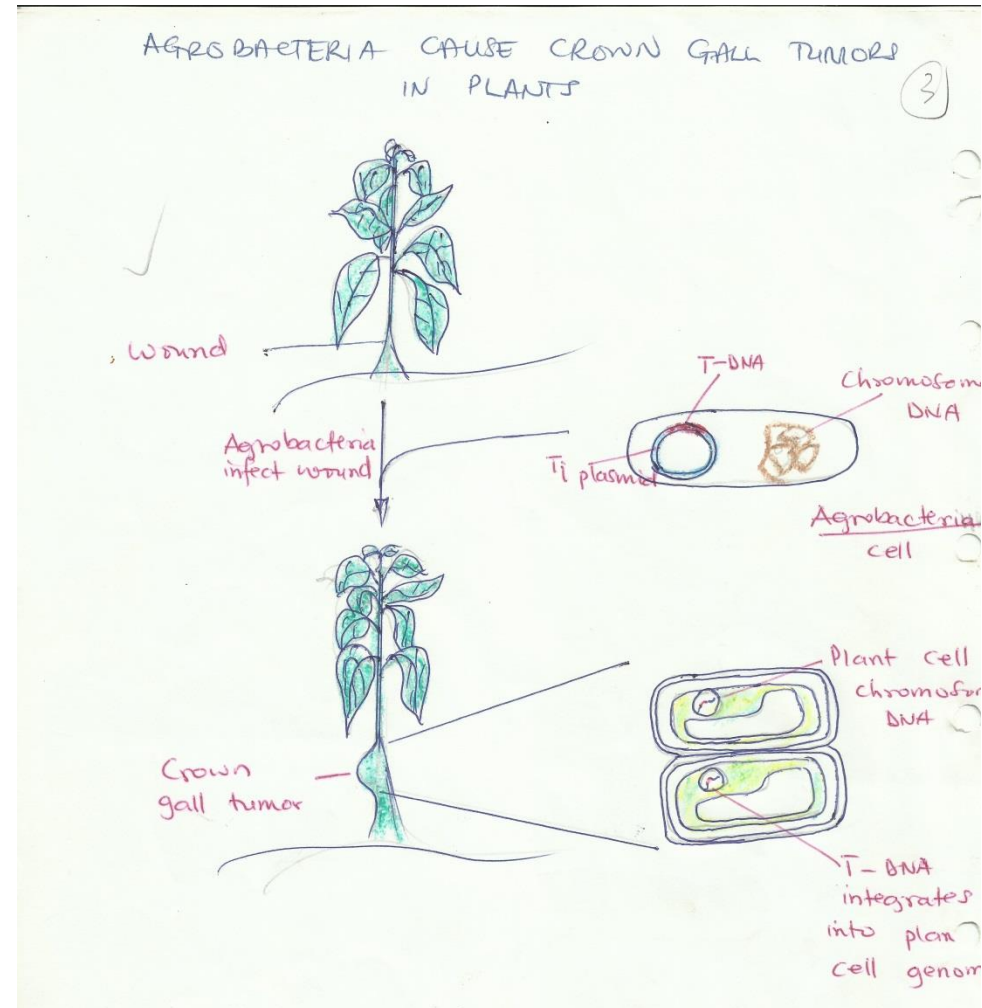 AGROBACTERIA CAUSE CROWN GALL TUMORS
IN PLANTS
3
Wound
T-DNA
Chromosom
DNA
Agrobacteria
infect wound
Ti plasmid
Agrobacteria
cell
Plant cell
chromosom
DNA
Crown
gall tumor
T-DNA
integrates
into plan
cell genom